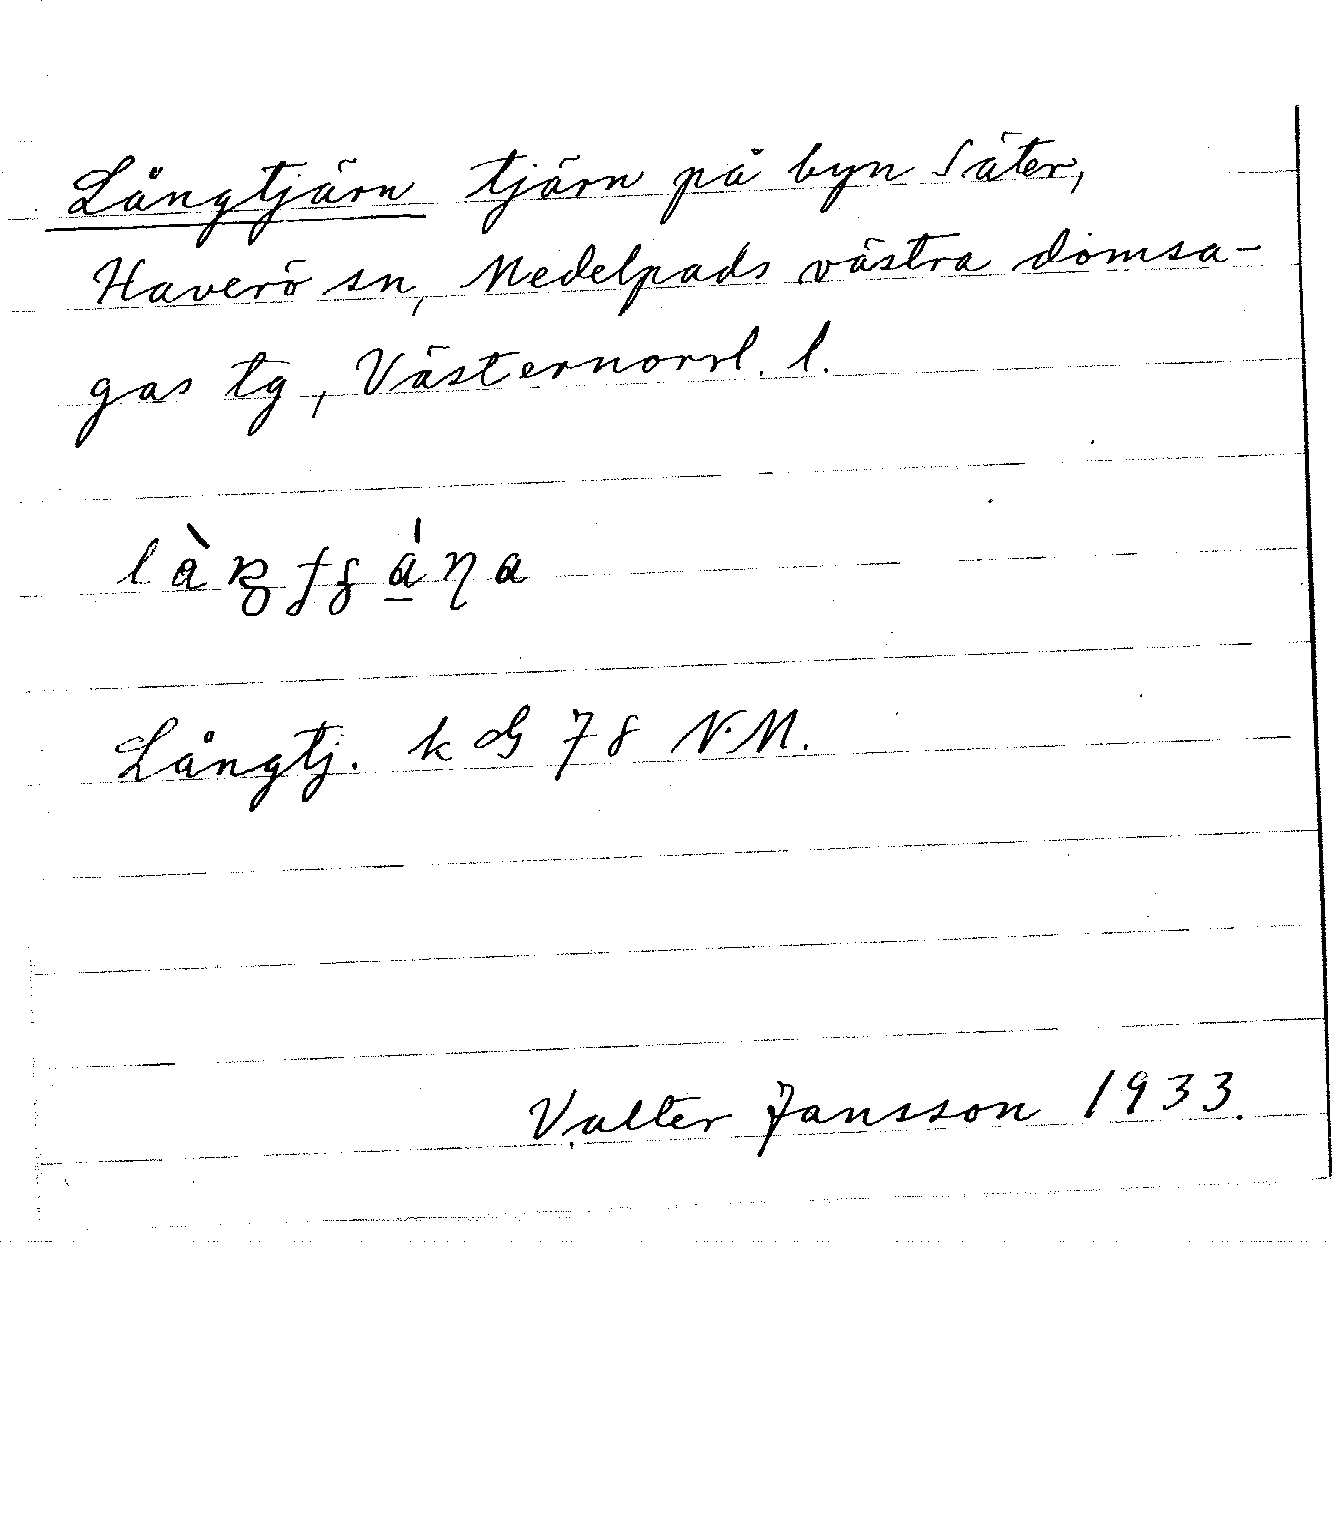 Långtjärn tjärn på byn Säter,
Haverö sn, Medelpads västra domsa-
gas tg, Västernorrl. l.
Långtj. k G 78 N.M.
Valter Jansson 1933.